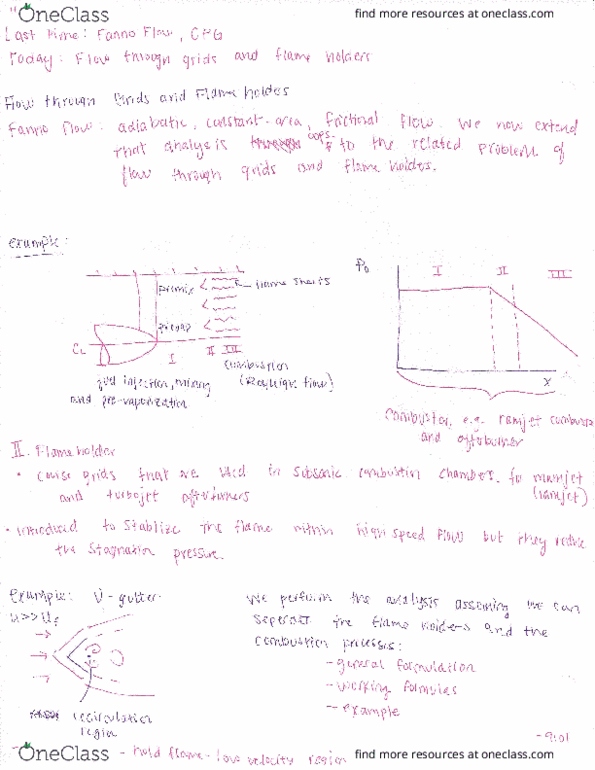 OneClass
find more resources at oneclass.com
Last time: Fanno Flow, CPG
Today: Flow through grids and flame holders
Flow through Grids and Flame holdes
Fanno flow: adiabatic, constant-area, frictional flow. We now extend
that analysis oops to the related problem of
flow through grids and flame holdes.
example:
premix
flame sheets
P₀
I
II
III
CL
I
II
III
fuel injection, mixing
and pre-vaporization
combustion
(Rayleigh flow)
x
combustor, e.g. ramjet combustor
and afterburner
II. Flame holder
• course grids that are used in subsonic combustion chamber for
and turbojet afterburners
(ramjet)
• introduced to stablize the flame within high speed flow but they reduce
the stagnation pressure.
example: V-gutter
u>>
We perform the analysis assuming we can
seperat the flame holders and the
combustion processes:
- general formulation
- working formulas
- example
recirculation
region
- 9:01
OneClass
- hold flame - low velocity region
find more resources at oneclass.com